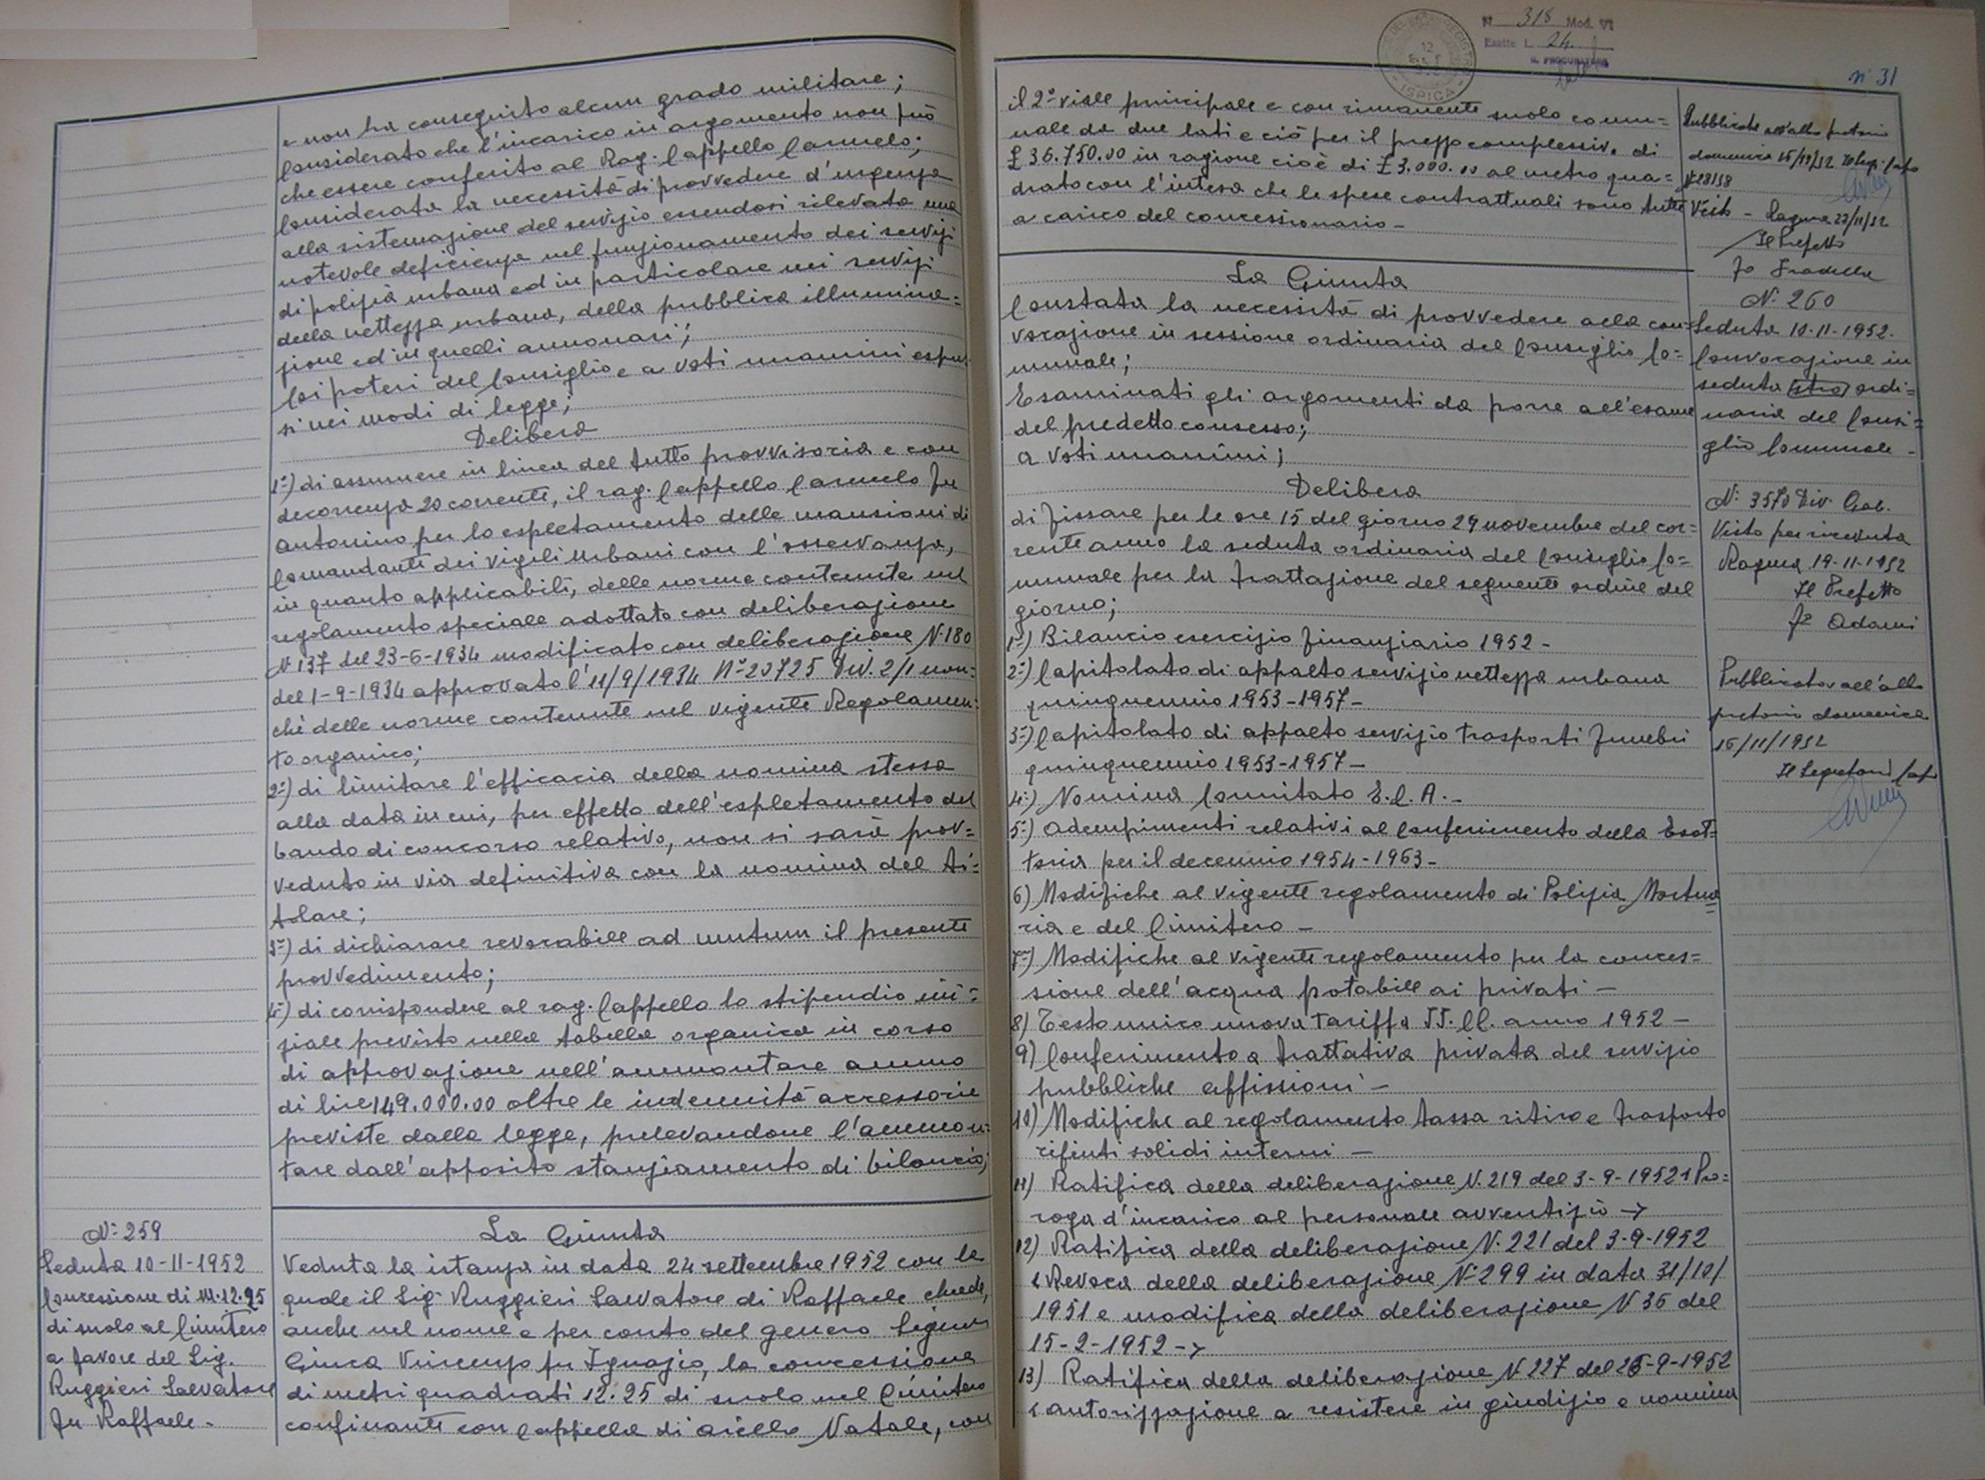 e non ha conseguito alcun grado militare;
Considerato che l'incarico in argomento non può
che essere conferito al Rag. Cappello Carmelo;
Considerata la necessità di provvedere d'urgenza
alla sistemazione del servizio essendosi rilevata una
notevole deficienza nel funzionamento dei servizi
di polizia urbana ed in particolare nei servizi
della nettezza urbana, della pubblica illumina=
zione ed in quelli annonari;
Coi poteri del Consiglio e a voti unanimi espres
si nei modi di legge;
Delibera
1°) di assumere in linea del tutto provvisoria e con
decorrenza 20 corrente, il rag. Cappello Carmelo fu
Antonino per lo espletamento delle mansioni di
Comandante dei Vigili Urbani con l'osservanza,
in quanto applicabili, delle norme contenute nel
regolamento speciale adottato con deliberazione
N. 137 del 23-6-1934 modificato con deliberazione N. 180
del 1-9-1934 approvato l'11/9/1934 N° 20725 Div. 2/1 non=
chè delle norme contenute nel vigente Regolamen=
to organico;
2°) di limitare l'efficacia della nomina stessa
alla data in cui, per effetto dell'espletamento del
bando di concorso relativo, non si sarà prov=
veduto in via definitiva con la nomina del ti=
tolare;
3°) di dichiarare revocabile ad nutum il presente
provvedimento;
4°) di corrispondere al rag. Cappello lo stipendio ini=
ziale previsto nella tabella organica in corso
di approvazione nell'ammontare annuo
di lire 149.000.00 oltre le indennità accessorie
previste dalla legge, prelevandone l'ammon=
tare dall'apposito stanziamento di bilancio;
N° 259
Seduta 10-11-1952
Concessione di M. 12.25
di suolo al Cimitero
a favore del Sig.
Ruggieri Salvatore
fu Raffaele -
La Giunta
Veduta la istanza in data 24 settembre 1952 con la
quale il Sig. Ruggieri Salvatore di Raffaele chiede,
anche nel nome e per conto del genero Signor
Giuca Vincenzo fu Ignazio, la concessione
di metri quadrati 12.25 di suolo nel Cimitero
confinante con cappella di Aiello Natale, con
N 318 Mod. VI
Esatte L. 24
IL PROCURATORE
ISPICA
n° 31
il 2° viale principale e con rimanente suolo comu=
nale da due lati e ciò per il prezzo complessivo di
£ 36.750.00 in ragione cioè di £ 3.000.00 al metro qua=
drato con l'intesa che le spese contrattuali sono tutte
a carico del concessionario -
Pubblicata all'albo pretorio
domenica 16/11/52 Il Segr. Capo
N. 28138
Visto - Ragusa 27/11/52
Il Prefetto
f° Gradella
La Giunta
Constata la necessità di provvedere alla con=
vocazione in sessione ordinaria del Consiglio Co=
munale;
Esaminati gli argomenti da porre all'esame
del predetto consesso;
a voti unanimi;
Delibera
di fissare per le ore 15 del giorno 29 novembre del cor=
rente anno la seduta ordinaria del Consiglio Co=
munale per la trattazione del seguente ordine del
giorno;
1°) Bilancio esercizio finanziario 1952 -
2°) Capitolato di appalto servizio nettezza urbana
quinquennio 1953-1957 -
3°) Capitolato di appalto servizio trasporti funebri
quinquennio 1953-1957 -
4°) Nomina Comitato E.C.A. -
5°) Adempimenti relativi al Conferimento della Esat=
toria per il decennio 1954-1963 -
6) Modifiche al vigente regolamento di Polizia Mortua
ria e del Cimitero -
7°) Modifiche al vigente regolamento per la conces=
sione dell'acqua potabile ai privati -
8) Testo unico nuova tariffa II. CC. anno 1952 -
9) Conferimento a trattativa privata del servizio
pubbliche affissioni -
10) Modifiche al regolamento tassa ritiro e trasporto
rifiuti solidi interni -
11) Ratifica della deliberazione N. 219 del 3-9-1952 < Pro=
roga d'incarico al personale avventizio >
12) Ratifica della deliberazione N. 221 del 3-9-1952
< Revoca della deliberazione N° 299 in data 31/10/
1951 e modifica della deliberazione N 36 del
15-2-1952 ->
13) Ratifica della deliberazione N 227 del 26-9-1952
< autorizzazione a resistere in giudizio e nomina
N° 260
Seduta 10-11-1952.
Convocazione in
seduta (stra) ordi=
naria del Consi=
glio Comunale -
N° 3570 Div. Gab.
Visto per ricevuta
Ragusa 19-11-1952
Il Prefetto
f° Adami
Pubblicata all'albo
pretorio domenica
16/11/1952
Il Segretario Capo